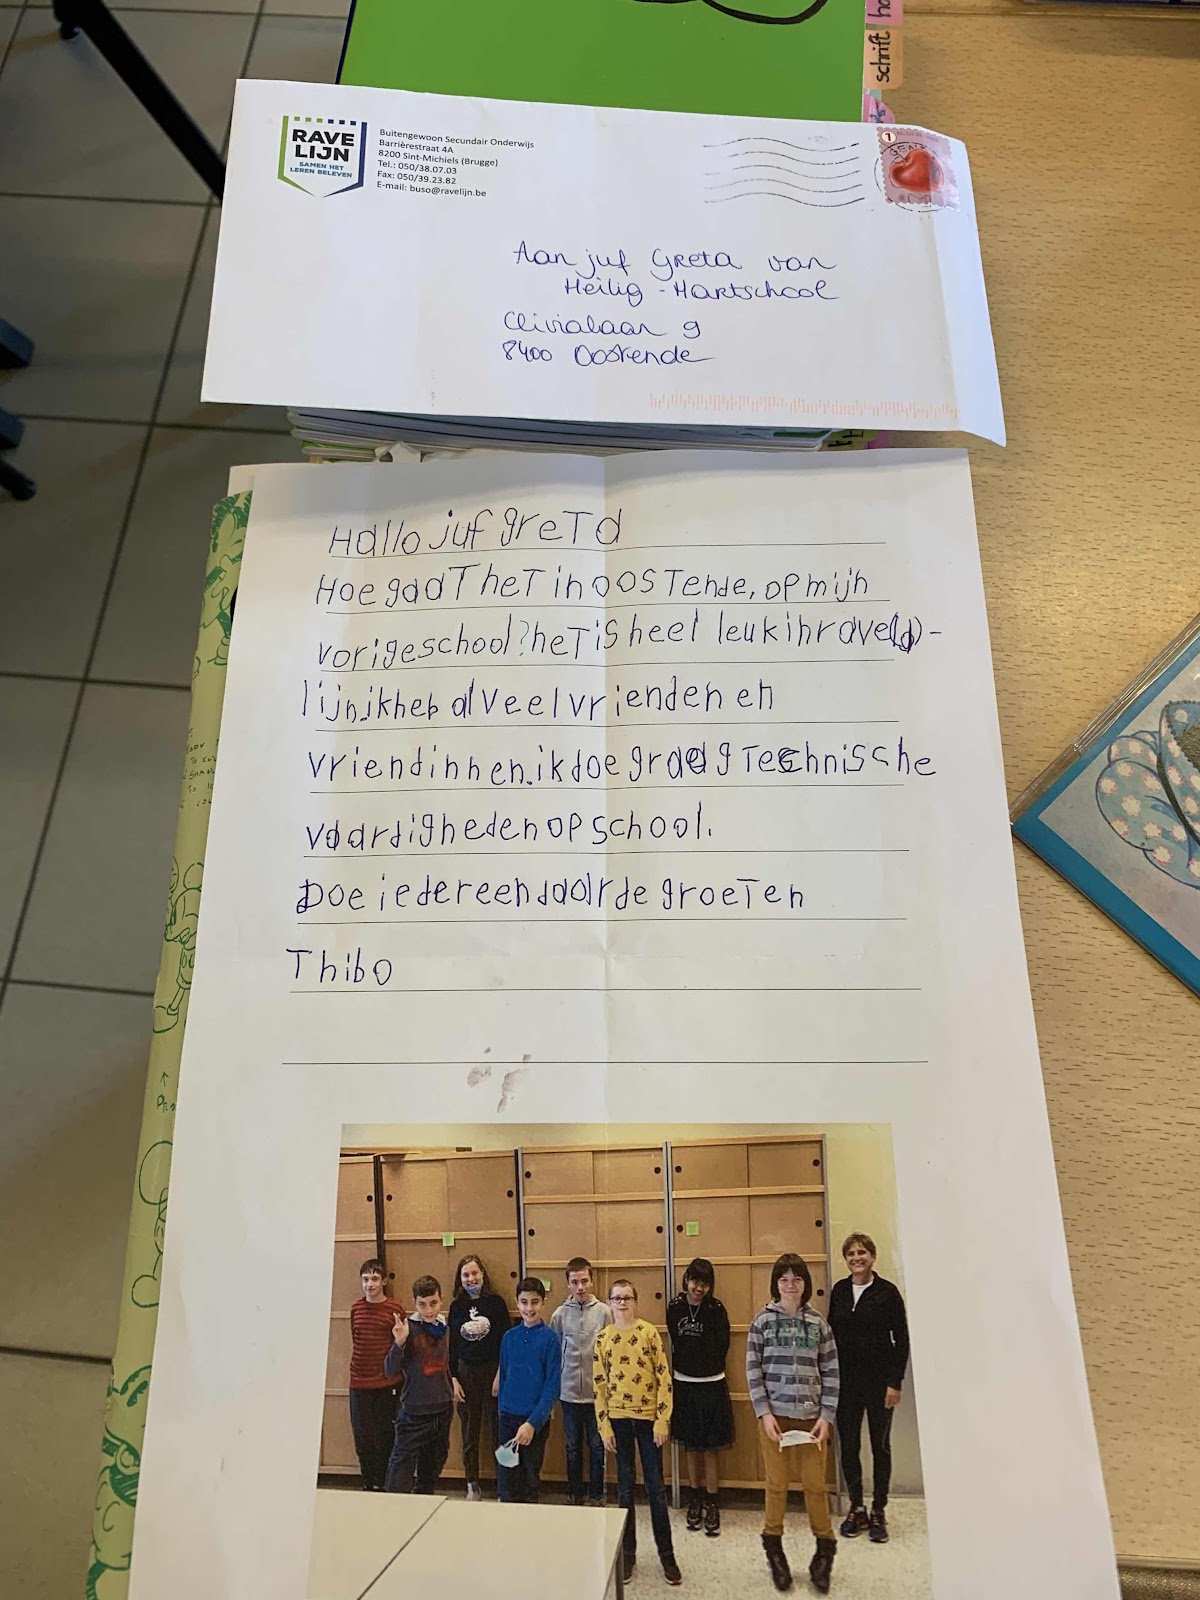 schrift
RAVE
LIJN
SAMEN HET
LEREN BELEVEN
Buitengewoon Secundair Onderwijs
Barrièrestraat 4A
8200 Sint-Michiels (Brugge)
Tel.: 050/38.07.03
Fax: 050/39.23.82
E-mail: buso@ravelijn.be
1
Aan juf Greta van
Heilig-Hartschool
Clivialaan 9
8400 Oostende
Hallo juf greTa
Hoe gaaT heT in oosTende, op mijn
vorige school? heT is heel leuk in rave-
lijn. ik heb al veel vrienden en
vriendinnen. ik doe graag Technische
vaardigheden op school.
Doe iedereen daar de groeTen
Thibo